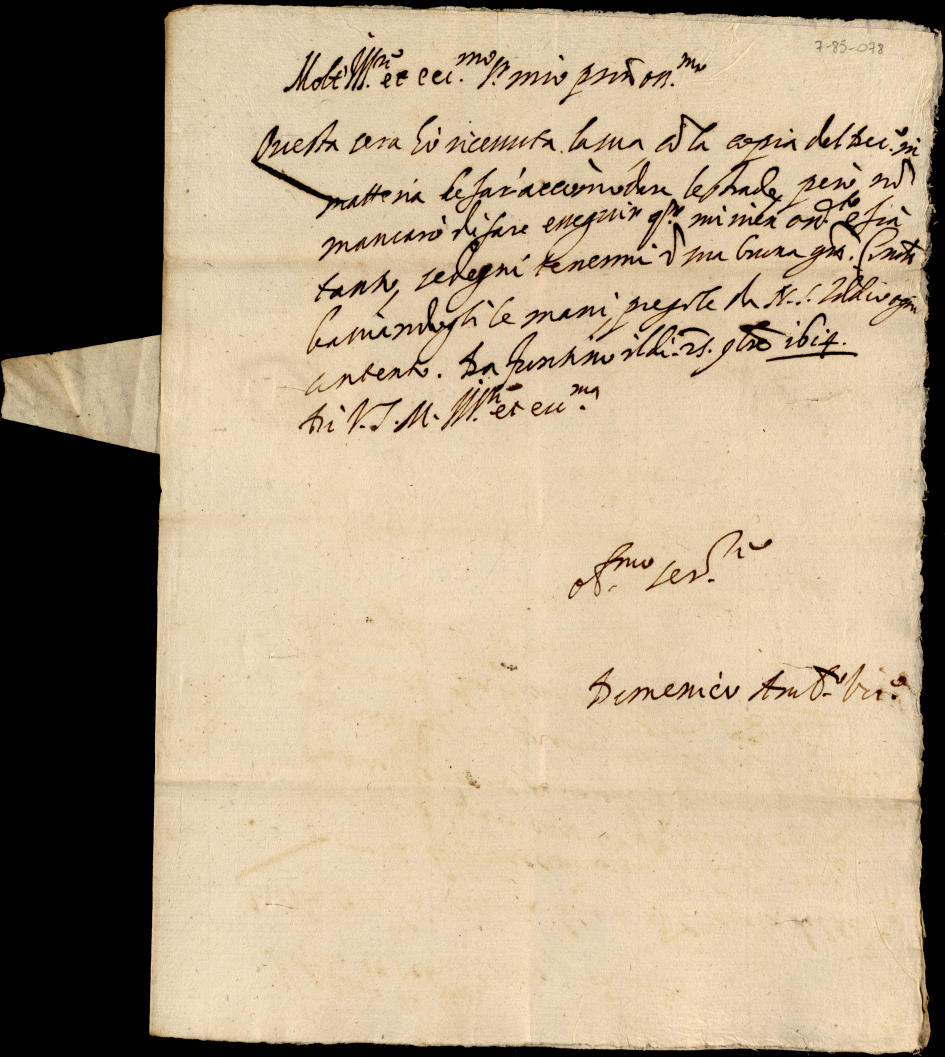 7-85-078
Molt' Ill.re et ecc.mo S.r mio pron oss.mo
Questa sera hò ricevuta la sua cō la copia del Dec.o in
matteria de far accōmodare le strade, però nō
mancarò di fare essequir q.to mi vien ord.to e frà
tanto, se degni tenermi ī sua buona gra.
basciandogli le mani pregole da N. S. Iddio ogni
contento. Da il dì. 25. 9bre 1614.
Di V. S. M. Ill.re et ecc.ma
ob.mo ser.re
Domenico Amb.o